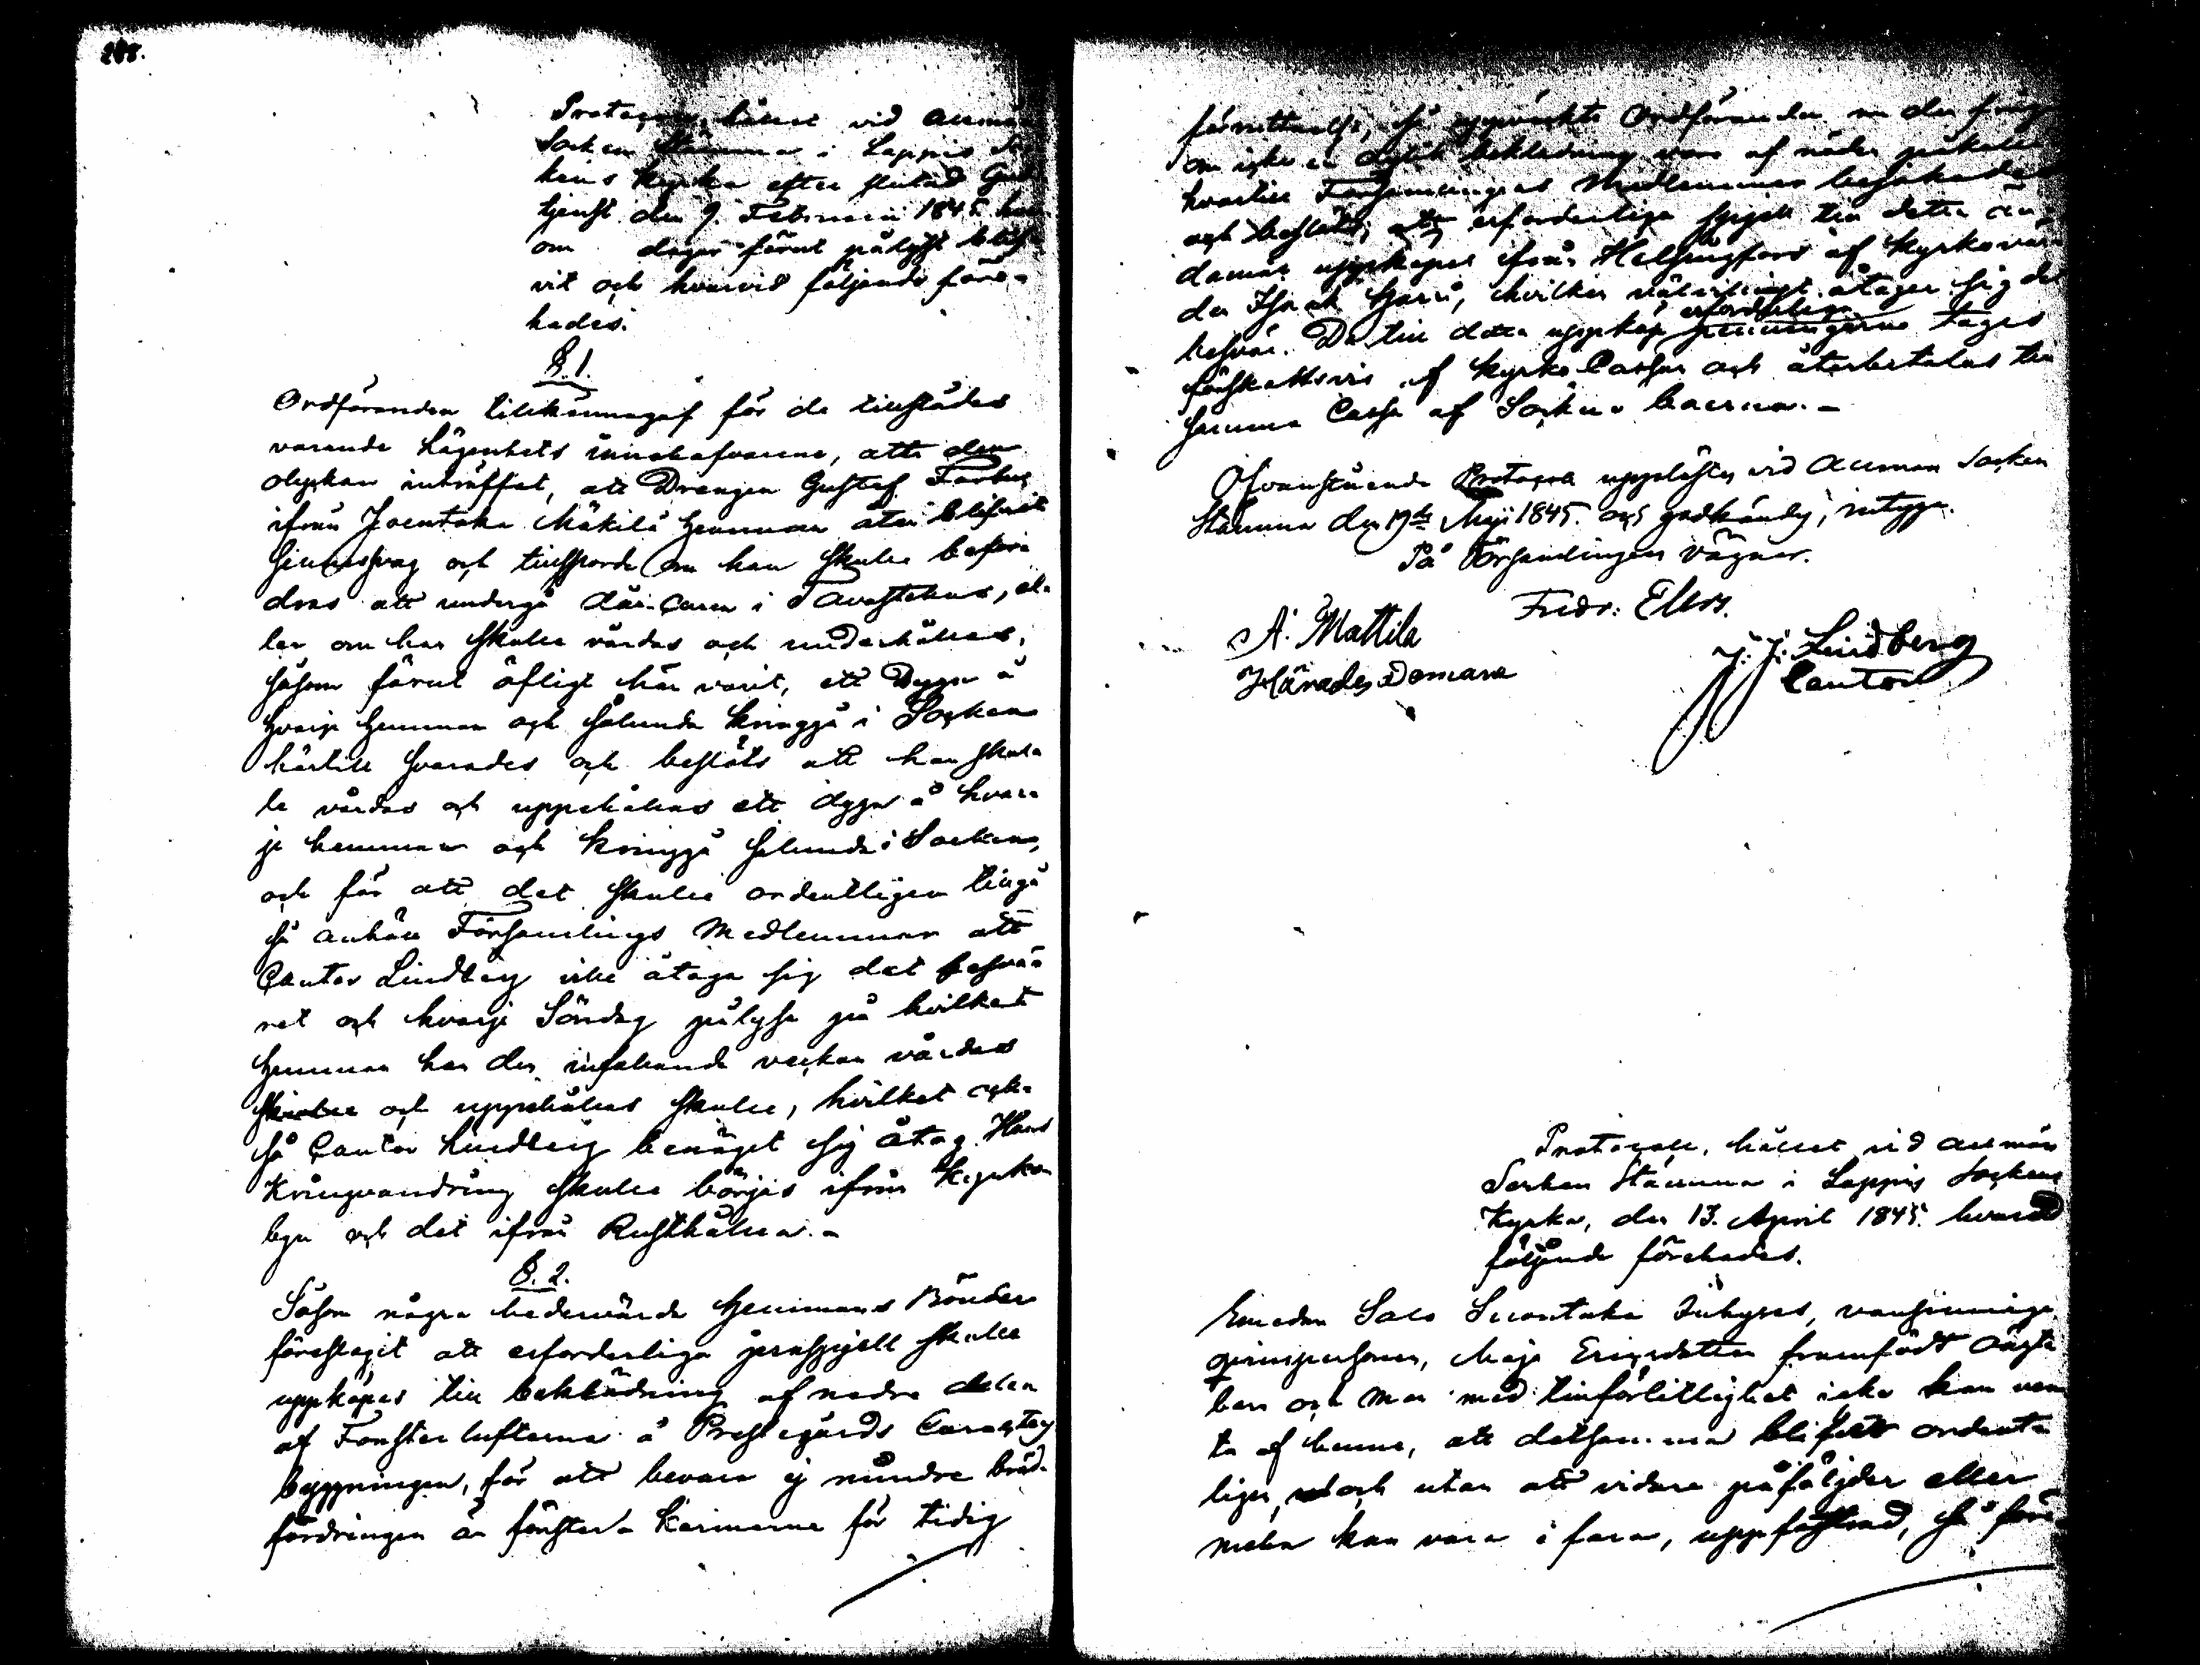 Protocoll, hållet vid allmän
Socken Stämma i Lappis Soc-
kens Kyrka efter slutad Gud-
tjenst den 9. Februarii 1845. hvar-
om dagar förut pålyst blif-
vit och hvarvid följande före-
hades.
§. 1.
Ordföranden tillkännagaf för de tillstädes
varande Lägenhets innehafvarne, att den
olyckan inträffat, att Drängen Gustaf
ifrån Jventaka Mäkilä Hemman åter blifvit
sinnessvag och tillsporde om han skulle beford-
dras att undergå där Curen i Tavastehus, el-
ler om han skulle vårdas och underhållas,
såsom förut öfligt här varit, ett Dygn å
hvarje Hemman och sålunda kringgå i Socken
härtill svarades och beslöts att han skul-
le vårdas och uppehållas ett dygn å hvar-
je hemman och kringgå sålunda i Socken,
och för att det skulle ordentligen tillgå
så anhöll Församlings Medlemmar att
Cantor Lindberg ville åtaga sig det besvä-
ret och hvarje Söndag pålysa på hvilket
Hemman han den infallande veckan vårdas
skulle och uppehållas skulle, hvilket ock-
så Cantor Lindberg benäget sig åtog. Hans
Kringvandring skulle börjas ifrån Kyrko-
byn och det ifrån Rusthållen.-
§. 2.
Såsom några hedervärde Hemmans Bönder
föreslagit att erforderliga jernspjell skulle
uppköpas till beklädning af nedre delen
af Fönster lufterna å Prestegårds Caracters
byggningen, för att bevara ej mindre bräd-
fordringen än fönster-karmarne för tidig
förruttnelse, så uppväckte Ordföranden nu den fråga
om icke en dylik beklädning vore af nöden påkallad
hvartill Församlingens Medlemmar bejakade
och beslöts, att erforderliga spjell till detta än-
damål uppköpes ifrån Helsingfors af Kyrkovär-
den Isaak Harri, hvilken välvilligt åtager sig det
besvär. De till detta uppköp erforderliga penningarne tages
förskottsvis af Kyrko Cassan och återbetalas till
samma Cassa af Socknen boerna.-
Ofvanstående Protocoll upplästes vid allmän Socken
Stämma den 19de Maji 1845. och godkändes, intyga.
På Församlingens Vägnar.
Fredr. Ellers.
A. Mattila
Härades Domare
J. J. Lindberg
Cantor
Protocoll, hållet vid allmän
Socken Stämma i Lappis Sockens
Kyrka, den 13. April 1845. hvarvid
följande förehades.
Emedan Salo Suontaka Inhyses, vansinniga
qvinspersonen, Maja Ericsdotter framfödt oägta
barn och man med tillförlitlighet icke kan vän-
ta af henne, att detsamma blifver ordent-
ligen, och utan att vidare påföljder eller
mehn kan vara i fara, uppfostrad, så före-